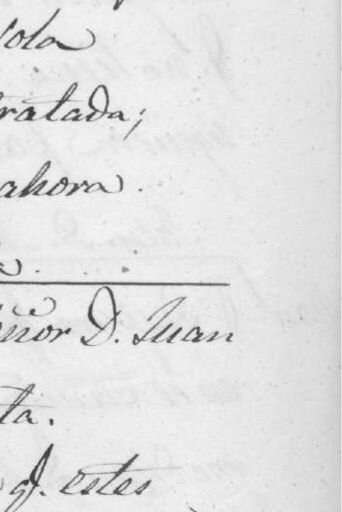 sola
tratada;
ahora.
a.
eñor D. Juan
ta.
q. estes